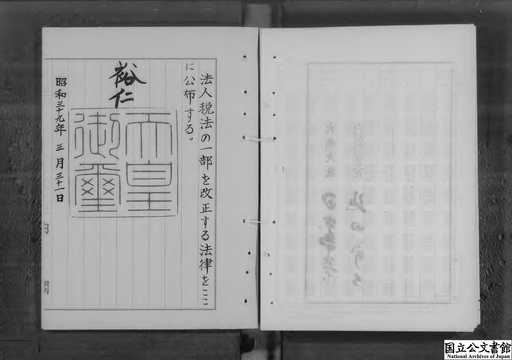 法人税法の一部を改正する法律をここ
に公布する。
裕仁
天皇
御璽
昭和三十九年三月三十一日
国立公文書館
National Archives of Japan